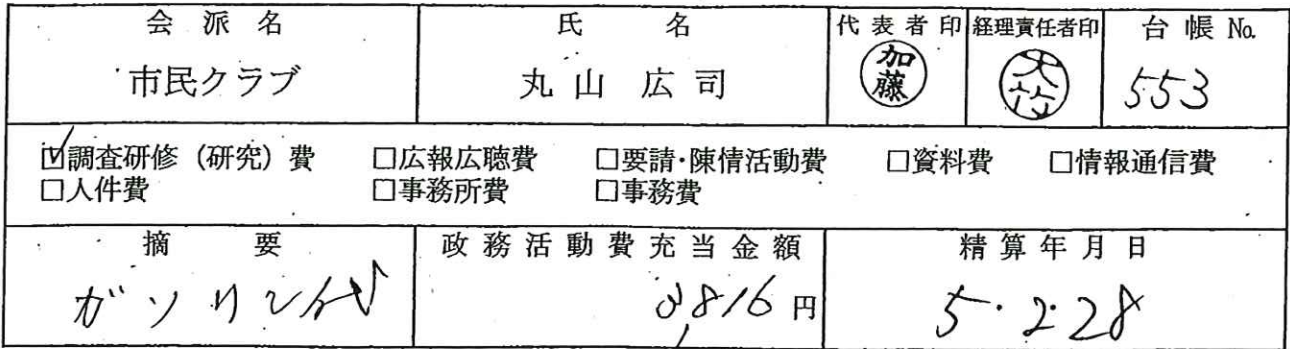 会派名 氏名 代表者印 経理責任者印 台帳No.
市民クラブ 丸山広司 加藤 大竹 553
☑調査研修（研究）費 □広報広聴費 □要請・陳情活動費 □資料費 □情報通信費
□人件費 □事務所費 □事務費
摘要 政務活動費充当金額 精算年月日
ガソリン代 3,816円 5.2.28